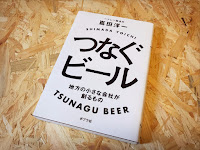 嶌田洋一
SHIMADA YOICHI
つなぐ
ビール
地方の小さな会社が
創るもの
TSUNAGU BEER
ポプラ社